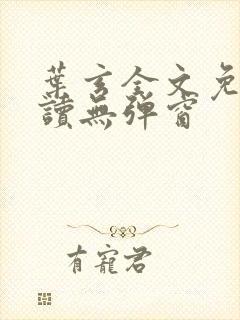 葉玄全文免
讀無彈窗
有寵君